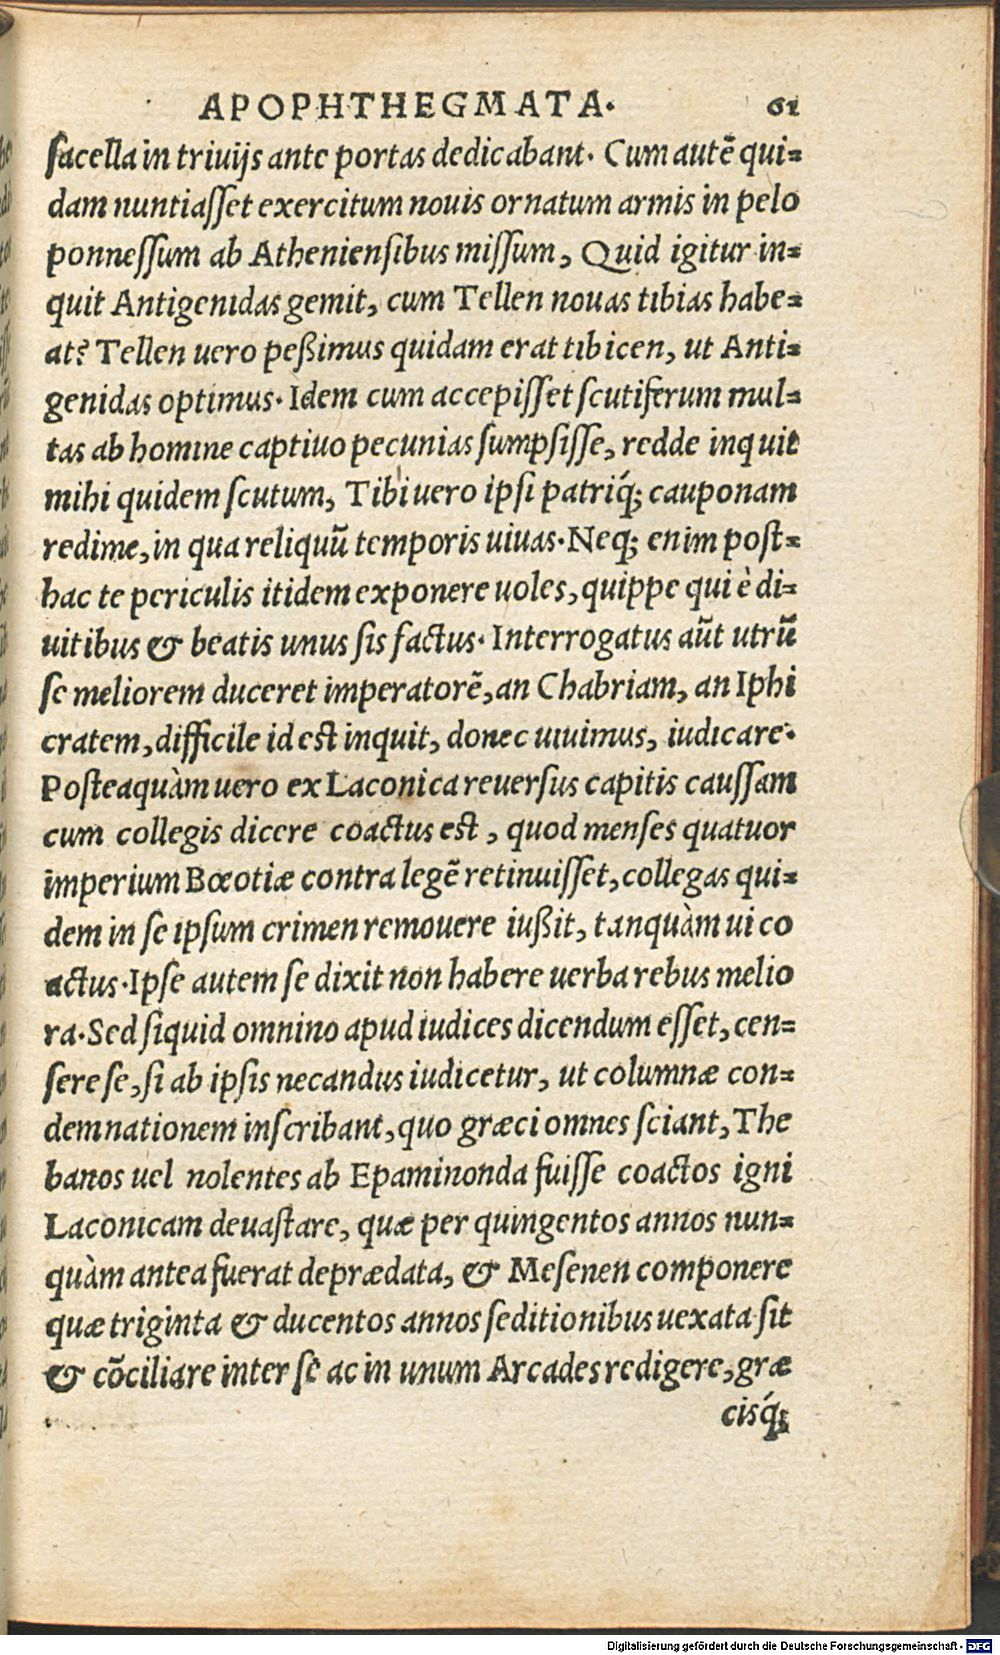 APOPHTHEGMATA. 61
sacella in triuijs ante portas dedicabant. Cum autẽ qui=
dam nuntiasset exercitum nouis ornatum armis in pelo
ponnessum ab Atheniensibus missum, Quid igitur in=
quit Antigenidas gemit, cum Tellen nouas tibias habe=
at? Tellen uero peßimus quidam erat tibicen, ut Anti=
genidas optimus. Idem cum accepisset scutiferum mul=
tas ab homine captiuo pecunias sumpsisse, redde inquit
mihi quidem scutum, Tibi uero ipsi patriq́; cauponam
redime, in qua reliquũ temporis uiuas. Neq; enim post=
hac te periculis itidem exponere uoles, quippe qui è di=
uitibus & beatis unus sis factus. Interrogatus aũt utrũ
se meliorem duceret imperatorẽ, an Chabriam, an Iphi
cratem, difficile id est inquit, donec uiuimus, iudicare.
Posteaquàm uero ex Laconica reuersus capitis caussam
cum collegis dicere coactus est, quod menses quatuor
imperium Bœotiæ contra legẽ retinuisset, collegas qui=
dem in se ipsum crimen remouere iußit, tanquàm ui co
actus. Ipse autem se dixit non habere uerba rebus melio
ra. Sed siquid omnino apud iudices dicendum esset, cen=
sere se, si ab ipsis necandus iudicetur, ut columnæ con=
demnationem inscribant, quo græci omnes sciant, The
banos uel nolentes ab Epaminonda fuisse coactos igni
Laconicam deuastare, quæ per quingentos annos nun=
quàm antea fuerat deprædata, & Mesenen componere
quæ triginta & ducentos annos seditionibus uexata sit
& cõciliare inter se ac in unum Arcades redigere, græ
cisq́;
Digitalisierung gefördert durch die Deutsche Forschungsgemeinschaft - DFG